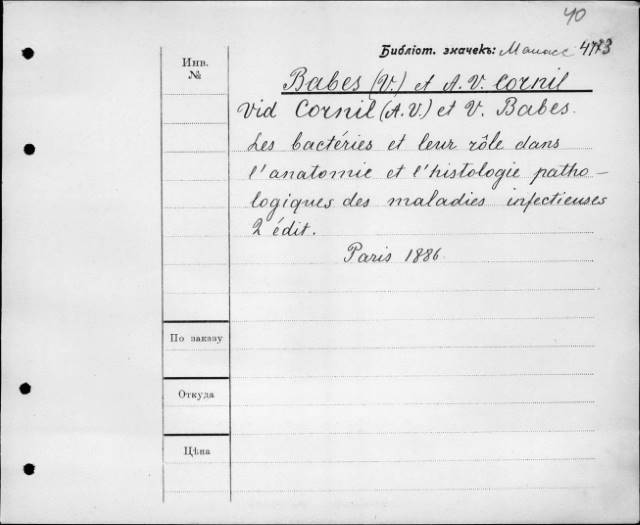 40
Библіот. значекъ: Манасс 4773
Инв.
№
Babes (V.) et A. V. Cornil
Vid Cornil (A. V.) et V. Babes.
Les bactéries et leur rôle dans
l'anatomie et l'histologie patho-
logiques des maladies infectieuses
2 édit.
Paris 1886
По заказу
Откуда
Цѣна